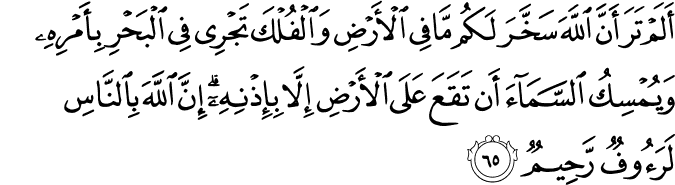 أَلَمْ تَرَ أَنَّ ٱللَّهَ سَخَّرَ لَكُم مَّا فِى ٱلْأَرْضِ وَٱلْفُلْكَ تَجْرِى فِى ٱلْبَحْرِ بِأَمْرِهِۦ
وَيُمْسِكُ ٱلسَّمَآءَ أَن تَقَعَ عَلَى ٱلْأَرْضِ إِلَّا بِإِذْنِهِۦٓ ۗ إِنَّ ٱللَّهَ بِٱلنَّاسِ
لَرَءُوفٌ رَّحِيمٌ ٦٥